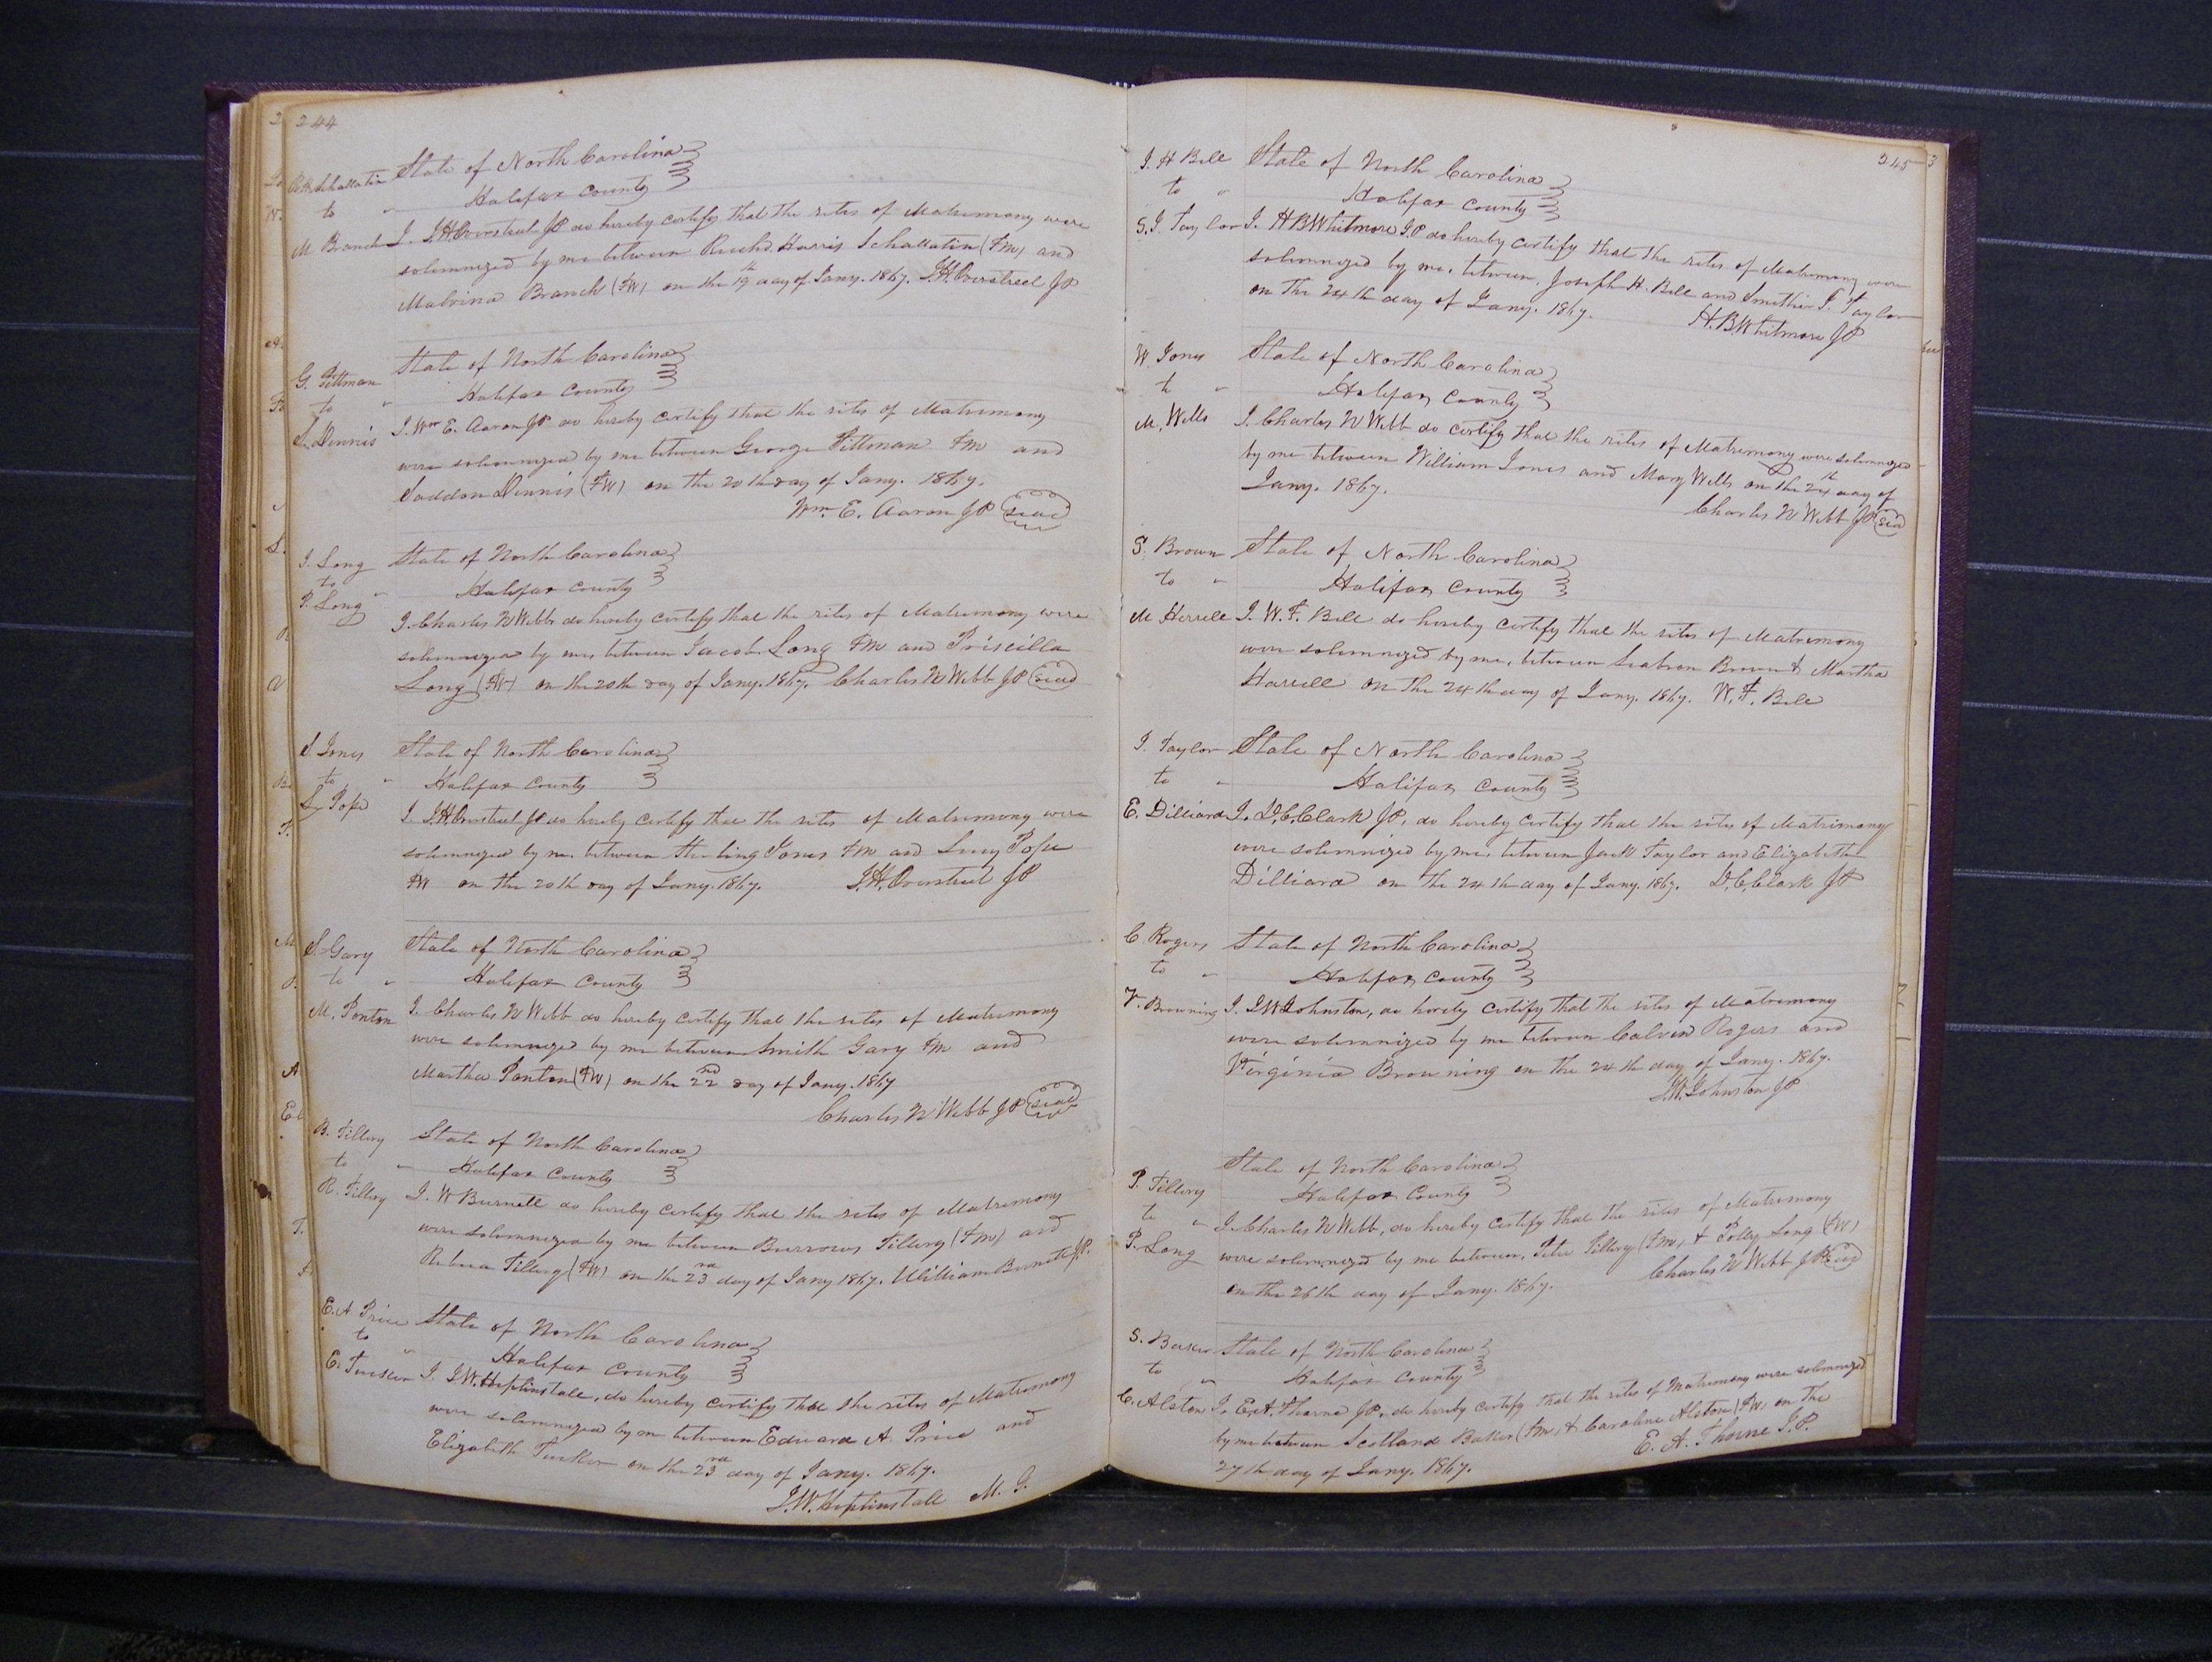 244
State of North Carolina
Halifax County
to
M Branch
I. J.H. Overstreet JP do hereby certify that the rites of Matrimony were
solemnized by me between Richd Harris Schallatin (FM) and
Malvina Branch (FW) on the 19th day of Jany. 1867. J.H. Overstreet JP
G. Pittman
to "
S. Dennis
State of North Carolina
Halifax County
I. Wm E. Aaron JP do hereby certify that the rites of Matrimony
were solemnized by me between George Pittman FM and
Dennis (FW) on the 20th day of Jany. 1867.
Wm. E. Aaron JP seal
J. Long
to "
P. Long
State of North Carolina
Halifax County
I. Charles N Webb do hereby certify that the rites of Matrimony were
solemnized by me, between Jacob Long FM and Priscilla
Long (FW) on the 20th day of Jany. 1867. Charles N Webb JP seal
S. Jones
to "
L. Pope
State of North Carolina
Halifax County
I. J.H. Overstreet JP do hereby certify that the rites of Matrimony were
solemnized by me, between Sterling Jones FM and Lucy Pope
FW on the 20th day of Jany. 1867. J.H. Overstreet JP
S. Gary
to "
M. Ponton
State of North Carolina
Halifax County
I. Charles N Webb do hereby certify that the rites of Matrimony
were solemnized by me between Smith Gary FM and
Martha Ponton (FW) on the 22nd day of Jany. 1867
Charles N Webb JP seal
B. Tillery
to "
R. Tillery
State of North Carolina
Halifax County
I. W Burnett do hereby certify that the rites of Matrimony
were solemnized by me between Burrows Tillery (FM) and
Tillery (FW) on the 23rd day of Jany 1867. William Burnett JP.
E.A Price
to "
E. Tucker
State of North Carolina
Halifax County
I. J.W. Heptinstall, do hereby certify that the rites of Matrimony
were solemnized by me between Edward A. Price and
Elizabeth Tucker on the 23rd day of Jany. 1867.
J.W. Heptinstall M. G.
245
J. H Bell
to "
S.J. Taylor
State of North Carolina
Halifax County
I. H B Whitmore J.P do hereby certify that the rites of Matrimony were
solemnized by me, between, Joseph H. Bell and J. Taylor
on the 24th day of Jany. 1867. H.B. Whitmore JP
W. Jones
to "
M. Wells
State of North Carolina
Halifax County
I. Charles N Webb do certify that the rites of Matrimony were solemnized
by me between William Jones and Mary Wells on the 24th day of
Jany. 1867.
Charles N Webb JP seal
S. Brown
to "
M Harrell
State of North Carolina
Halifax County
I. W. F. Bell do hereby certify that the rites of Matrimony
were solemnized by me, between Seabron Brown & Martha
Harrell on the 24th day of Jany. 1867. W. F. Bell
J. Taylor
to "
E. Dilliard
State of North Carolina
Halifax County
I. D.C. Clark JP, do hereby certify that the rites of Matrimony
were solemnized by me, between Jack Taylor and Elizabeth
Dilliard on the 24th day of Jany. 1867. D.C. Clark JP
C. Rogers
to "
V. Browning
State of North Carolina
Halifax County
I. J.W. Johnston, do hereby certify that the rites of Matrimony
were solemnized by me between Calvin Rogers and
Virginia Browning on the 24th day of Jany. 1867.
J.W. Johnston JP
P. Tillery
to "
P. Long
State of North Carolina
Halifax County
I. Charles N Webb, do hereby certify that the rites of Matrimony
were solemnized by me between, Peter Tillery (FM) & Polly Long (FW)
on the 26th day of Jany. 1867. Charles N Webb JP seal
S.
to "
C. Alston
State of North Carolina
Halifax County
I. E.A. Thorne JP, do hereby certify that the rites of Matrimony were solemnized
by me between Scotland (FM) & Caroline Alston (FW) on the
27th day of Jany. 1867. E. A. Thorne J.P.